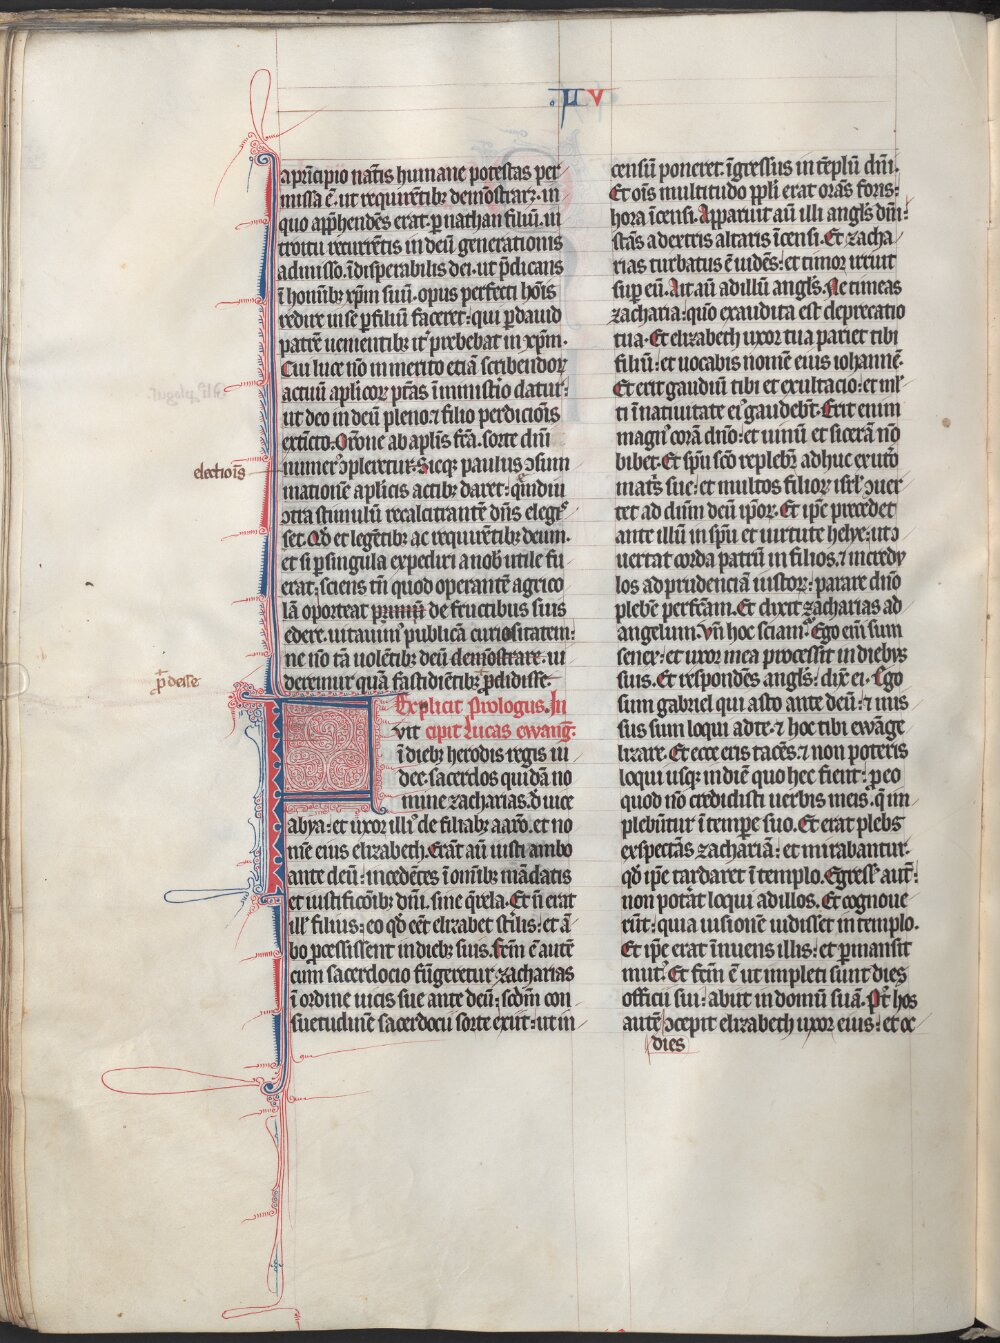 LU
a principio natīs humane potestas per
missa ē. ut requirētibꝫ demōstraret. in
quo app̄hendēs erat. ꝑ nathan filiū. in
troitu recurrētis in deū generationis
admisso. īdisperabilis dei. ut p̄dicans
ī homībꝫ xp̄m suū. opus perfecti hoīs
redire in se ꝑ filiū faceret: qui ꝑ dauid
patrē uenientibꝫ it᷑ prebebat in xp̄m.
Cui luce nō inmerito etiā scribendoꝝ
actuū aplicoꝝ ptās ī ministio datur:
ut deo in deū pleno. ⁊ filio perdiciōis
extīcto. Orōne ab aplīs fcā. sorte dnī
electiōis
numerꝰ ↄpleretur. Sicqꝫ paulus ↄsum
mationē aplicis actibꝫ daret. quē diu
ↄtra stimulū recalcitrantē dn̄s elegiꝰ
set. Qd̄ et legētibꝫ ac requirētibꝫ deum.
et si ꝑ singula expediri a nob̄ utile fu
erat: sciens tn̄ quod operantē agrico
lā oporteat primū de fructibus suis
edere. uitauimꝰ publicā curiositatem:
ne nō tā uolētibꝫ deū demōstrare. ui
p̄desse
deremur quā fastidiētibꝫ p̄didisse.
Explicit Prologus. In
cipit Lucas ewanḡ.
Fvit
ī diebꝫ herodis regis iu
dee. sacerdos quidā no
mine zacharias. d̓ uice
abya: et uxor illiꝰ de filiabꝫ aarō. et no
mē eius elizabeth. Erāt aū iusti ambo
ante deū: incedētes ī omībꝫ mādatis
et iustificōibꝫ dnī. sine q̄rela. Et n̄ erat
illꝭ filius: eo qd̄ eēt elizabet st̄ilis: et ā
bo ꝓcessissent in diebꝫ suis. Fcm̄ ē autē
cum sacerdocio fūgeretur zacharias
ī ordine uicis sue ante deū: scd̄m con
suetudinē sacerdocii sorte exiit: ut in
censū poneret. īgressus in tēplū dnī.
Et oīs multitudo ppli erat orās foris:
hora īcensi. Apparuit aū illi angls̄ dnī:
stās a dextris altaris īcensi. Et zacha
rias turbatus ē uidēs: et timor irruit
suꝑ eū. Ait aū ad illū angls̄. Ne timeas
zacharia: quō exaudita est deprecatio
tua. Et elizabeth uxor tua pariet tibi
filiū: et uocabis nomē eius iohannē.
Et erit gaudiū tibi et exultacio: et ml̓
ti ī natiuitate eiꝰ gaudebt̄. Erit enim
magnꝰ corā dn̄o: et uinū et sicerā nō
bibet. Et sp̄u scō replebr̄ adhuc ex utō
matr̄s sue: et multos filioꝝ isrl̓ ↄuer
tet ad dn̄m deū ip̄oꝝ. Et ip̄e precedet
ante illū in sp̄u et uirtute helye: ut ↄ
uertat corda patrū in filios. ⁊ incredu
los ad prudenciā iustoꝝ: parare dn̄o
plebē perfcām. Et dixit zacharias ad
angelum. Vn̄ hoc sciam. Ego em̄ sum
senex: et uxor mea processit in diebus
suis. Et respondēs angls̄: dix̄ ei. Ego
sum gabriel qui asto ante deū: ⁊ mis
sus sum loqui ad te. ⁊ hoc tibi ewāge
lizare. Et ecce eris tacēs. ⁊ non poteris
loqui usqꝫ in diē quo hec fient: ꝓ eo
quod nō credidisti uerbis meis. q̄ im
plebūtur ī tempe suo. Et erat plebs
exspectās zachariā: et mirabantur.
qd̄ ip̄e tardaret ī templo. Egressꝰ aut̄:
non potāt loqui ad illos. Et cognoue
rūt: quia uisionē uidisset in templo.
Et ip̄e erat īnuens illis: et ꝑmansit
mutꝰ. Et fcm̄ ē ut impleti sunt dies
officii sui: abiit in domū suā. Pꝰt hos
autē ↄcepit elizabeth uxor eius: et oc
dies